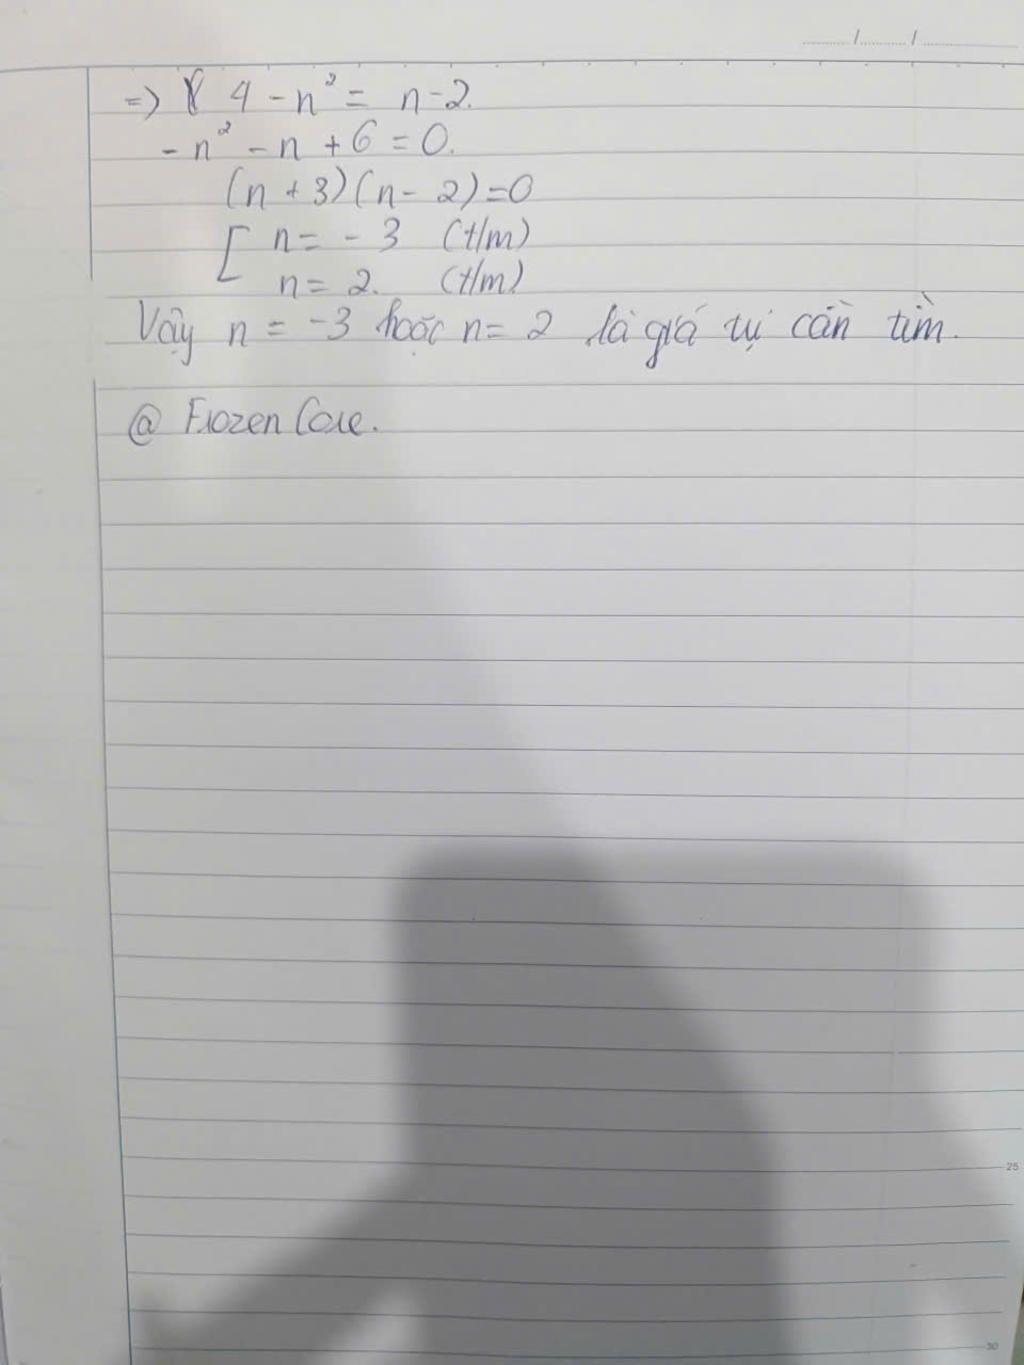 ...../...../.....
=> 4 - n² = n - 2.
- n² - n + 6 = 0.
(n + 3)(n - 2) = 0
[ n = - 3 (t/m)
n = 2. (t/m)
Vậy n = -3 hoặc n = 2 là giá trị cần tìm.
@ FrozenCore.
25
30